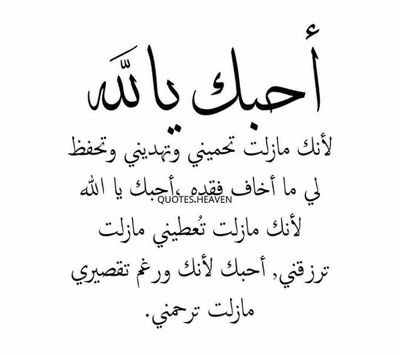 أحبك يالله
لأنك مازلت تحميني وتهديني وتحفظ
لي ما أخاف فقده ،أحبك يا الله
QUOTES.HEAVEN
لأنك مازلت تُعطيني مازلت
ترزقني, أحبك لأنك ورغم تقصيري
مازلت ترحمني.